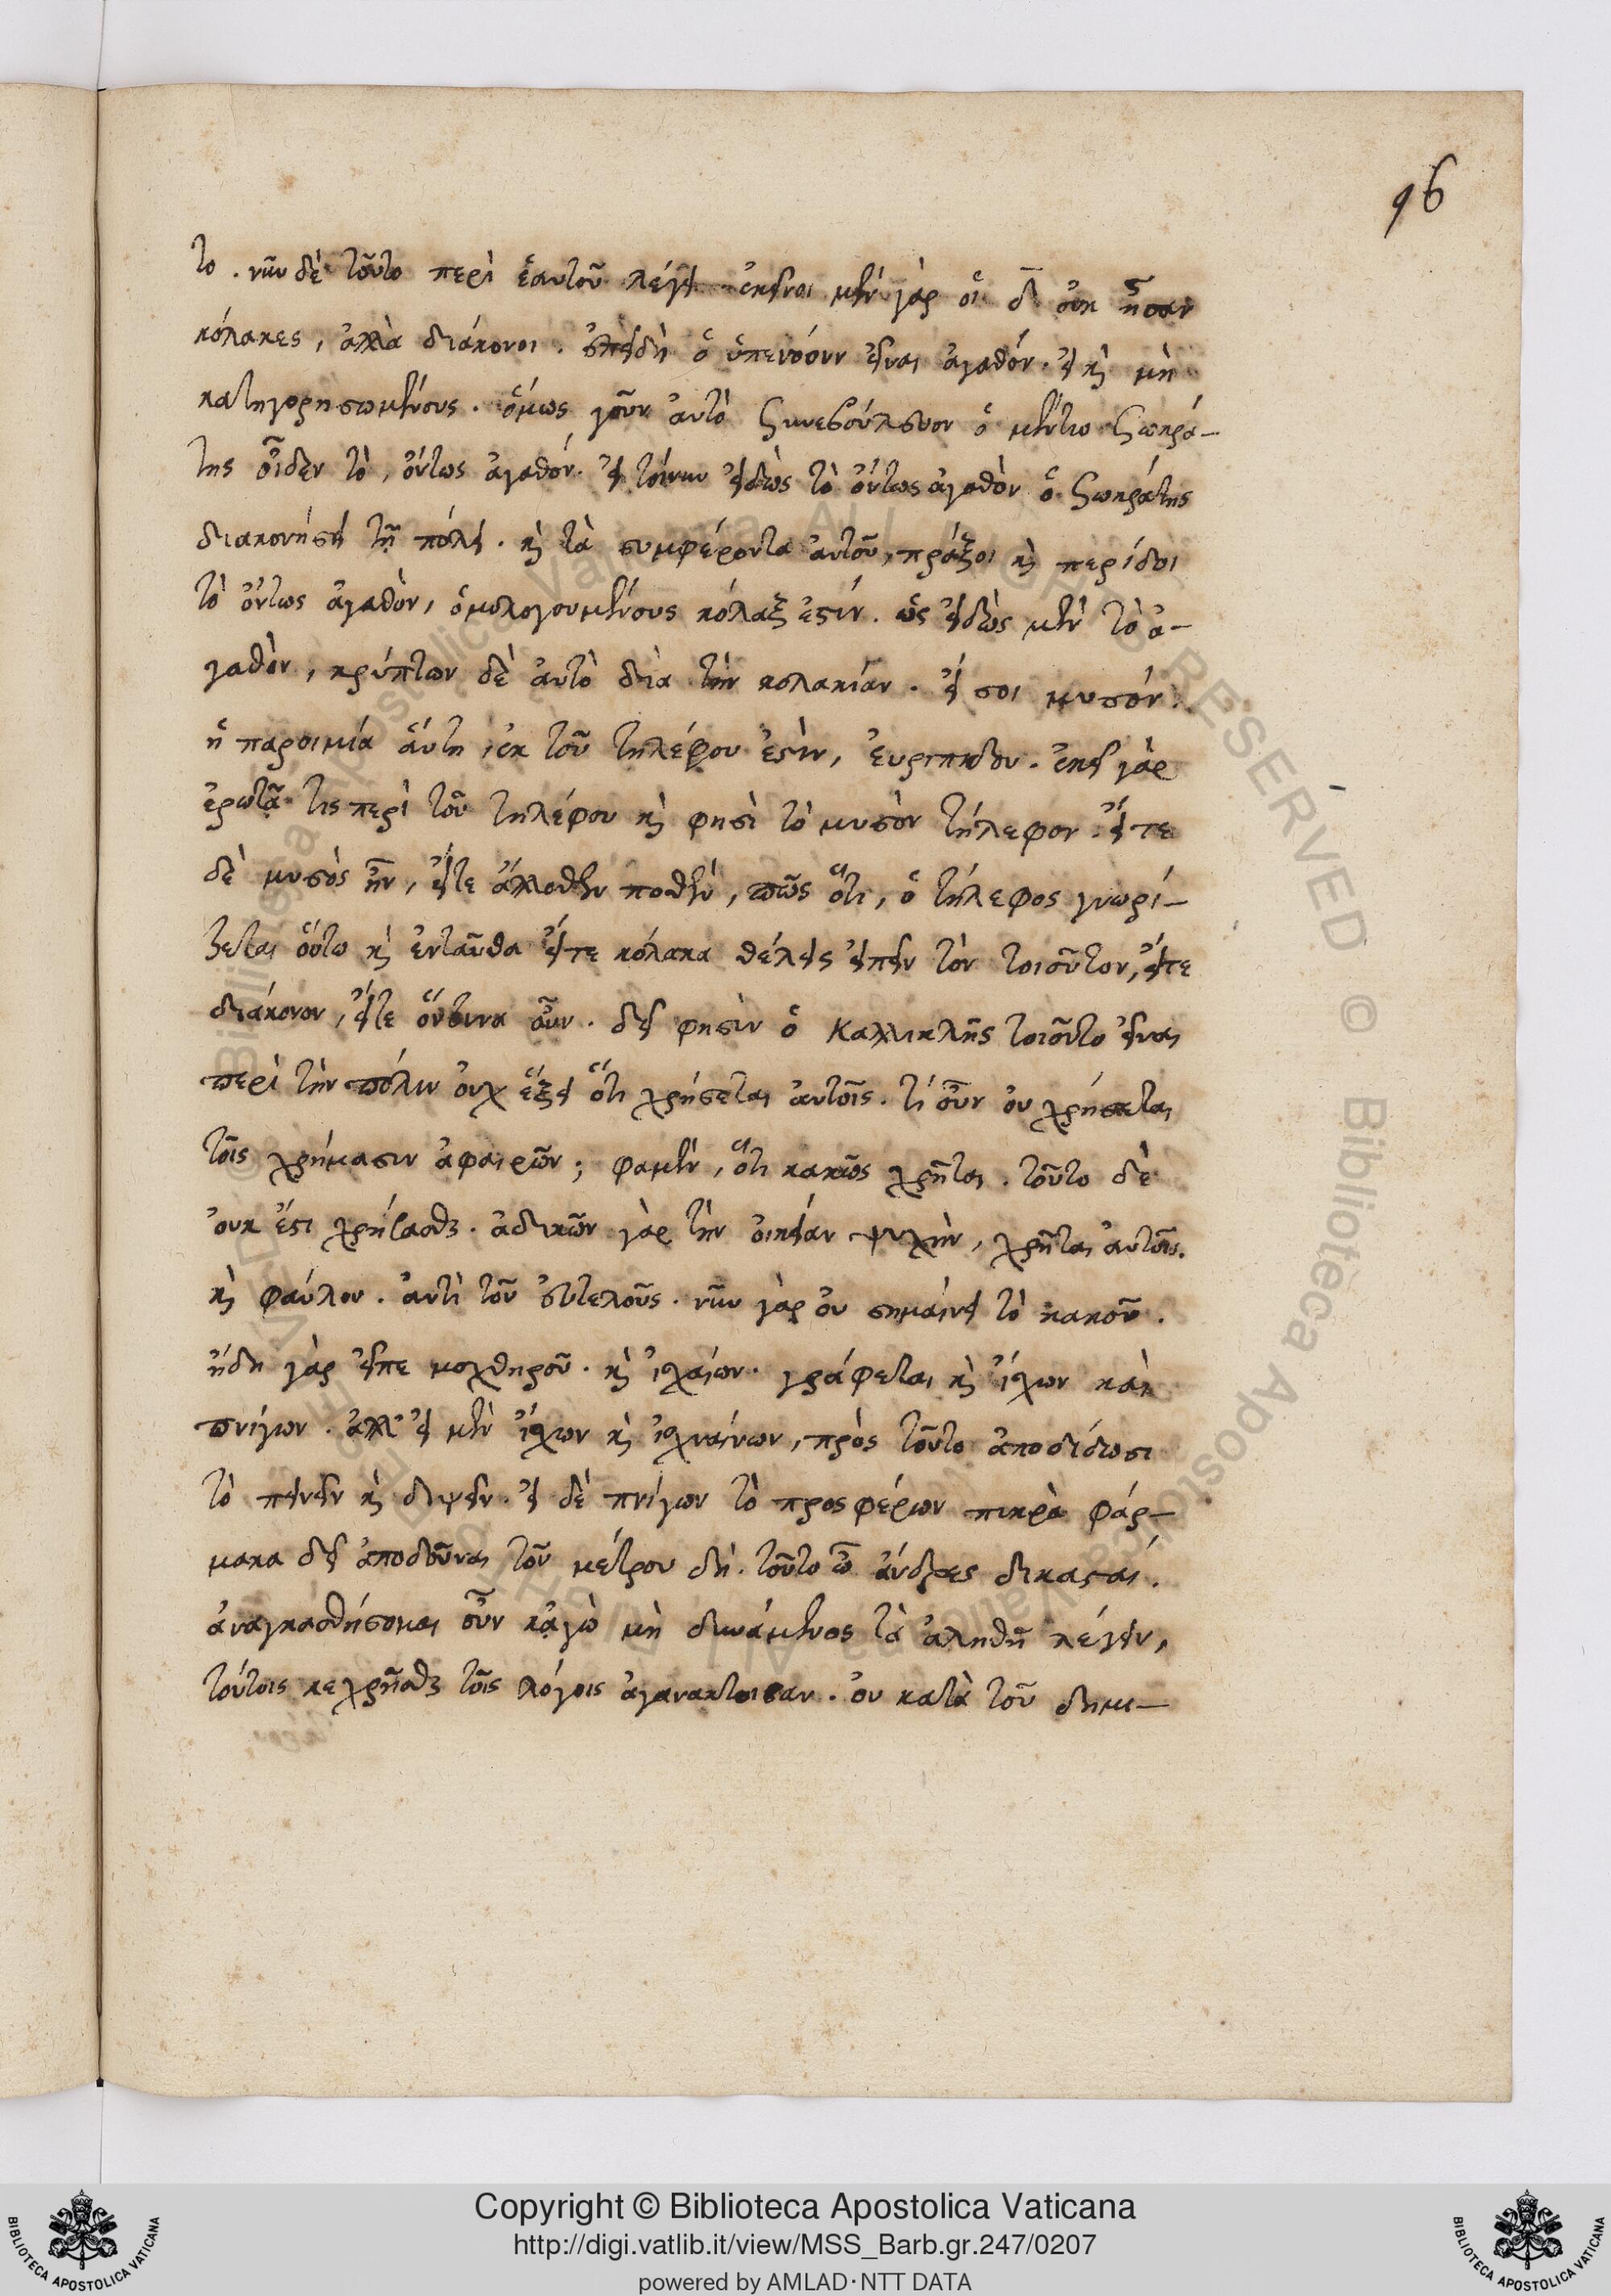 96
το. νῦν δὲ τοῦτο περὶ ἑαυτοῦ λέγει ἐκεῖνοι μὲν γὰρ οἱ δ̅ οὐκ ἦσαν
κόλακες, ἀλλὰ διάκονοι. ἐπειδὴ ὃ ὑπενόουν εἶναι ἀγαθόν. εἰ καὶ μὴ
κατηγορησωμένους. ὅμως γοῦν αὐτὸ συνεβούλευον ὁ μέντοι Σωκρά-
της οἶδεν τὸ, ὄντως ἀγαθόν. εἰ τοίνυν εἰδὼς τὸ ὄντως ἀγαθὸν ὁ Σωκράτης
διακονήσει τῇ πόλει. καὶ τὰ συμφέροντα αὐτοῦ, πράξοι καὶ περίδοι
τὸ ὄντως ἀγαθὸν, ὁμολογουμένους κόλαξ ἐστίν. ὡς εἰδὼς μὲν τὸ ἀ-
γαθὸν, κρύπτων δὲ αὐτὸ διὰ τὴν κολακίαν. εἴ σοι μυσόν.
ἡ παροιμία αὕτη ἐκ τοῦ τηλέφου ἐστὶν, εὐριπιδου. ἐκεῖ γὰρ
ἐρωτᾷ τις περὶ τοῦ τηλέφου καὶ φησὶ τὸ μυσὸν τήλεφον. εἴτε
δὲ μυσὸς ἦν, εἴτε ἄλλοθεν ποθὲν, πῶς ὅτι, ὁ τήλεφος γνωρί-
ζεται οὕτω καὶ ἐνταῦθα εἴτε κόλακα θέλεις εἰπεῖν τὸν τοιοῦτον, εἴτε
διάκονον, εἴτε ὅντινα οὖν. δεῖ φησὶν ὁ Καλλικλῆς τοιοῦτο εἶναι
περὶ τὴν πόλιν οὐχ ἕξει ὅτι χρήσεται αὐτοῖς. τί οὖν οὐ χρήσεται
τοῖς χρήμασιν ἀφαιρῶν; φαμὲν, ὅτι κακῶς χρῆται. τοῦτο δὲ
οὐκ ἔστι χρήσασθαι. ἀδικῶν γὰρ τὴν οἰκείαν ψυχὴν, χρῆται αὐτοῖς.
καὶ φαύλου. ἀντὶ τοῦ εὐτελοῦς. νῦν γὰρ οὐ σημαίνει τὸ κακοῦ.
ἤδη γὰρ εἶπε μοχθηροῦ. καὶ ἰσχαίων. γράφεται καὶ ἴσχων καὶ
πνίγων. ἀλλ' εἰ μὲν ἴσχων καὶ ἰσχναίνων, πρὸς τοῦτο ἀποδίδωσι
τὸ πεινεῖν καὶ διψεῖν. εἰ δὲ πνίγων τὸ προσφέρων πικρὰ φάρ-
μακα δεῖ ἀποδοῦναι τοῦ μέτρου δή. τοῦτο ὦ ἄνδρες δικασταί.
ἀναγκασθήσομαι οὖν κἀγὼ μὴ δυνάμενος τὰ ἀληθῆ λέγειν,
τούτοις κεχρῆσθαι τοῖς λόγοις ἀγανακτοισαν. οὐ κατὰ τοῦ δημι-